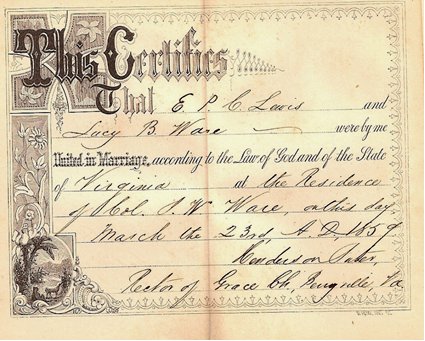 This Certifies
That E P. C. Lewis and
Lucy B Ware were by me
United in Marriage, according to the Law of God and of the State
of Virginia at the Residence
of Col. J. W Ware, on this day
March the 23rd, A. D. 1859.
Henderson
Rector of Grace Ch. Va